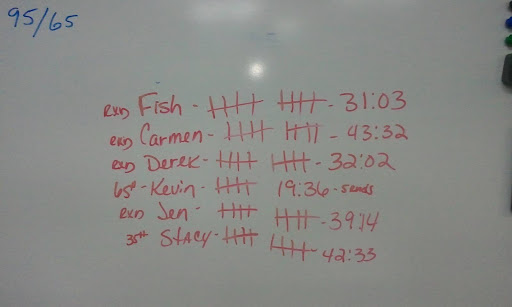 95/65
rxd Fish - 卌 卌 - 31:03
rxd Carmen - 卌 卌 - 43:32
rxd Derek - 卌 卌 - 32:02
65# - Kevin - 卌 19:36 -
rxd Jen - 卌 卌 - 39:14
35# Stacy - 卌 卌 - 42:33